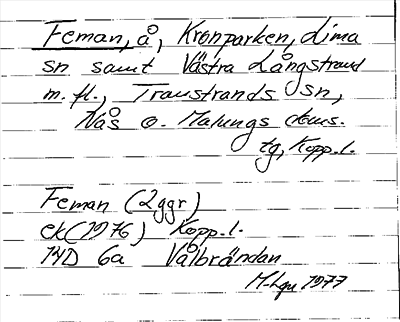 Feman, å, Kronparken, Lima
sn samt Västra Långstrand
m.fl., Transtrands sn,
Nås o. Malungs doms.
tg, Kopp.l.
Feman (2ggr)
ek(1976) Kopp.l.
14D 6a Vålbrändan
M-Lgn 1977